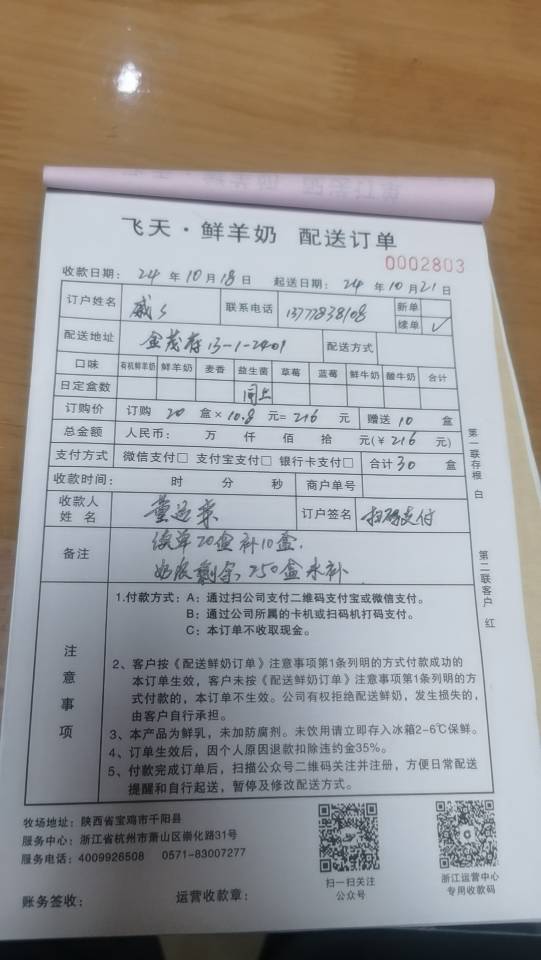 飞天·鲜羊奶 配送订单
0002803
收款日期: 24 年 10 月 18 日 起送日期: 24 年 10 月 21 日
订户姓名 戚 联系电话 13777838108 新单
续单 ✓
配送地址 金茂府13-1-2401 配送方式
口味 有机鲜羊奶 鲜羊奶 麦香 益生菌 草莓 蓝莓 鲜牛奶 酸牛奶 合计
日定盒数 同上
订购价 订购 20 盒× 10.8 元= 216 元 赠送 10 盒
总金额 人民币: 万 仟 佰 拾 元(¥ 216 元)
支付方式 微信支付□ 支付宝支付□ 银行卡支付□ 合计 30 盒
收款时间: 时 分 秒 商户单号
收款人姓名 董 订户签名 扫码支付
备注 续单20盒补10盒.
奶 剩余 250盒未补
注意事项
1.付款方式: A: 通过扫公司支付二维码支付宝或微信支付。
B: 通过公司所属的卡机或扫码机打码支付。
C: 本订单不收取现金。
2、客户按《配送鲜奶订单》注意事项第1条列明的方式付款成功的
本订单生效，客户未按《配送鲜奶订单》注意事项第1条列明的方
式付款的，本订单不生效。公司有权拒绝配送鲜奶，发生损失的，
由客户自行承担。
3、本产品为鲜乳，未加防腐剂。未饮用请立即存入冰箱2-6℃保鲜。
4、订单生效后，因个人原因退款扣除违约金35%。
5、付款完成订单后，扫描公众号二维码关注并注册，方便日常配送
提醒和自行起送，暂停及修改配送方式。
第一联存根 白
第二联客户 红
牧场地址: 陕西省宝鸡市千阳县
服务中心: 浙江省杭州市萧山区崇化路31号
服务电话: 4009926508 0571-83007277
扫一扫关注
公众号
浙江运营中心
专用收款码
账务签收: 运营收款章: